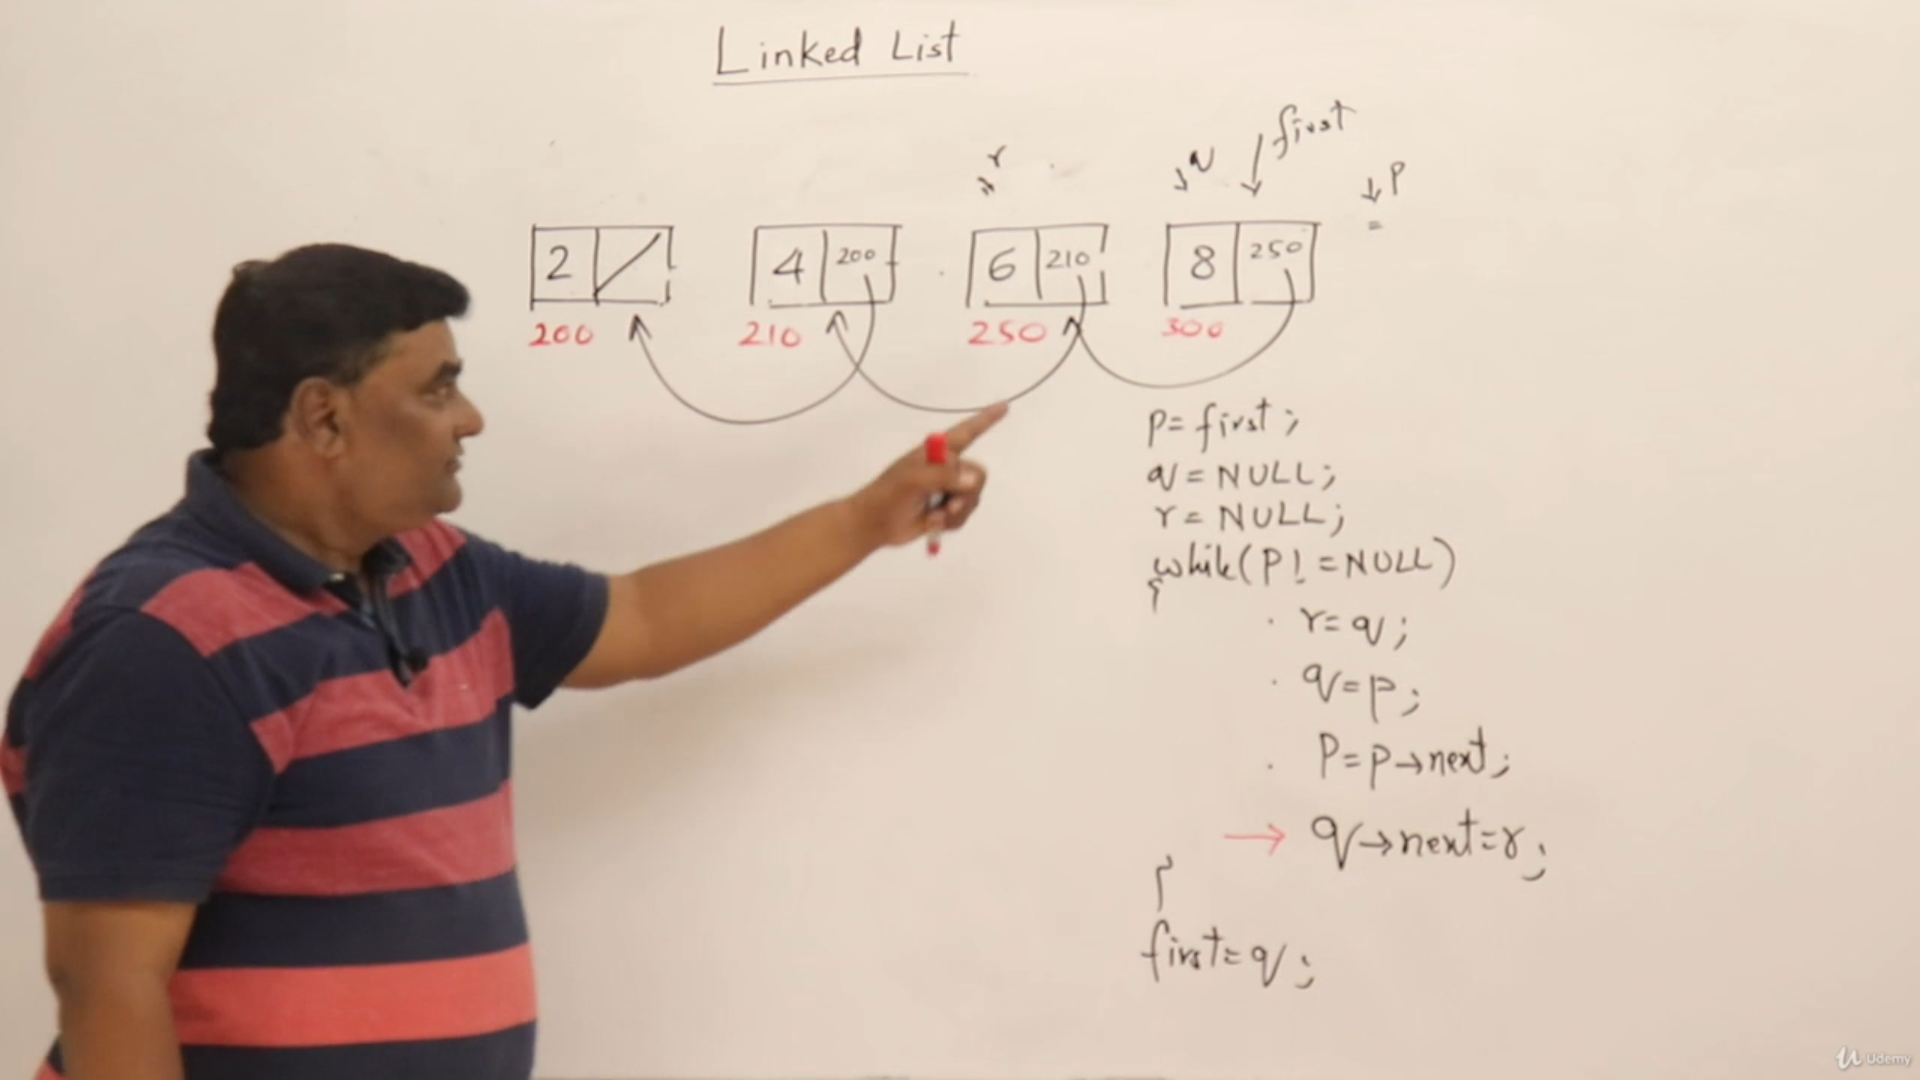 Linked List
r q first p
2 4 200 6 210 8 250
200 210 250 300
p= first;
q = NULL;
r = NULL;
while(P! =NULL)
{
r= q;
q=p;
P=p→next;
→ q→next=r;
}
first= q;
Udemy